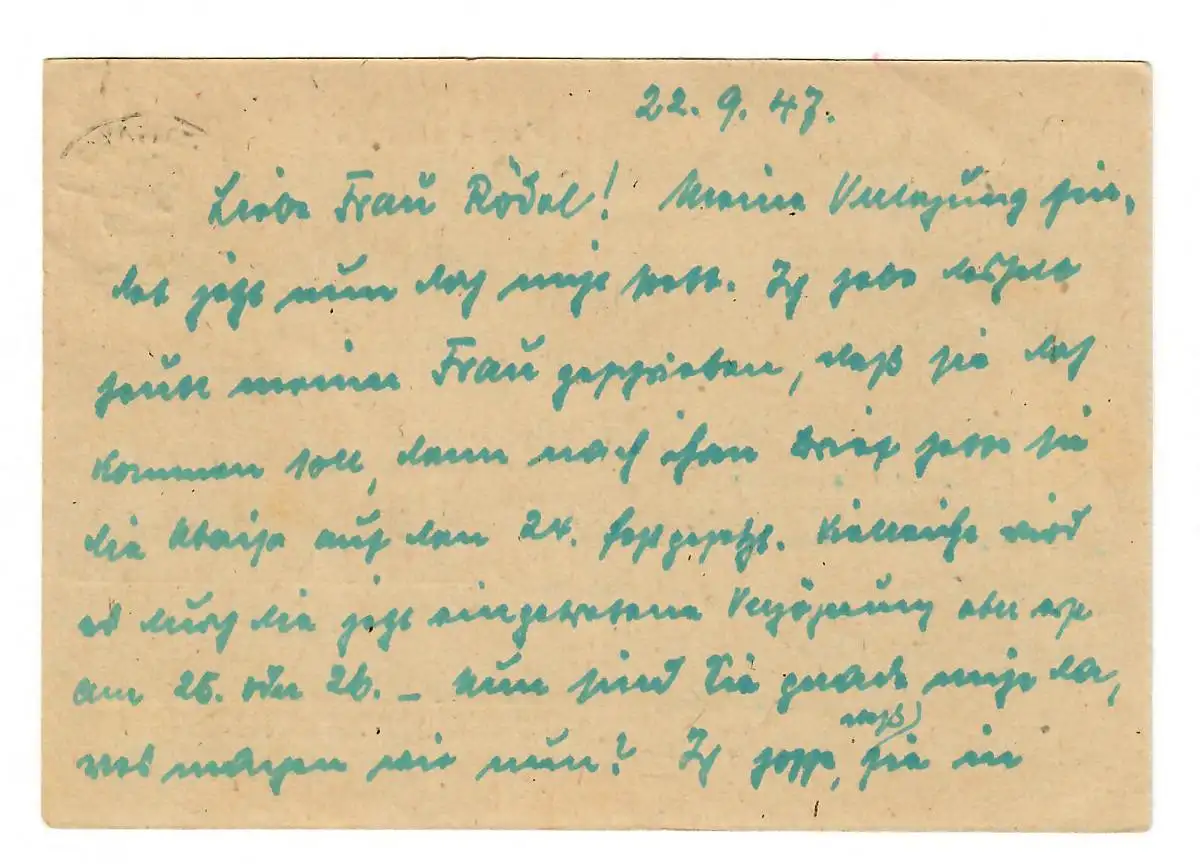 22. 9. 47.
Liebe Frau Rödel! Meine Verlegung fin-
det jetzt nun doch nicht statt. Ich habe deshalb
heute meiner Frau geschrieben, daß sie doch
kommen soll, denn nach ihrem Brief hatte sie
die Abreise auf den 24. festgesetzt. Vielleicht wird
es durch die jetzt eingetretene Verzögerung aber erst
am 25. oder 26. – Nun sind Sie gerade nicht da,
was machen wir nun? Ich hoffe, daß sie in